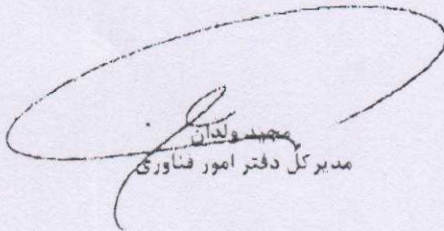 مجید ولدان
مدیر کل دفتر امور فناوری